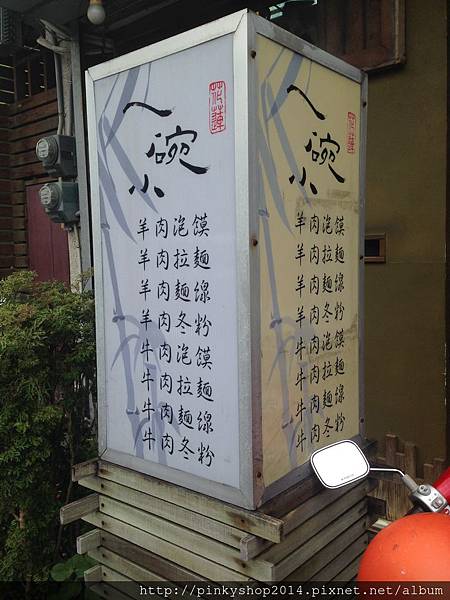 花蓮
ㄟ碗小
羊肉泡饃
羊肉拉麵
羊肉麵線
羊肉冬粉
牛肉泡饃
牛肉拉麵
牛肉麵線
牛肉冬粉
花蓮
ㄟ碗小
羊肉泡饃
羊肉拉麵
羊肉麵線
羊肉冬粉
牛肉泡饃
牛肉拉麵
牛肉麵線
牛肉冬粉
http://pinkyshop2014.pixnet.net/album